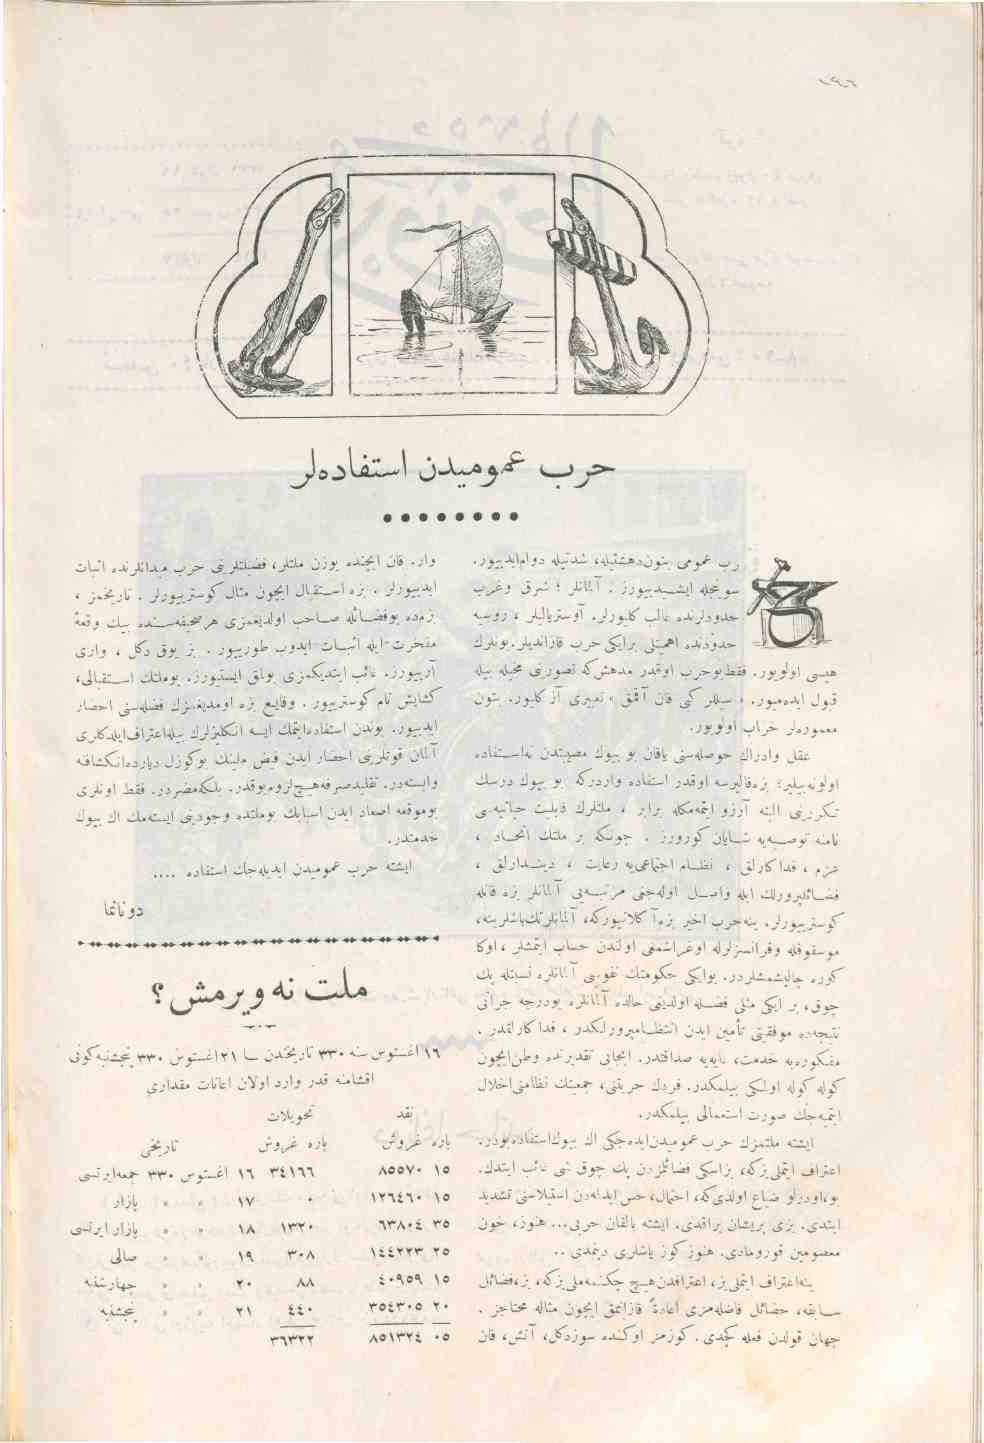 حرب عمومیدن استفاده‌لر
رب عمومی بتون دهشتیله، شدتیله دوام ایدییور.
سوینجله ایشیدییورز : آلمانلر ؛ شرق وغرب
حدودلرنده غالب کلیورلر. آوستریالیلر ، روسیه
حدودنده اهمیتلی برایکی حرب قازاندیلر. بونلرک
هپسی اولویور. فقط بوحرب اوقدر مدهش که تصورینی مخیله بیله
قبول ایده‌میور. « سیللر کبی قان آقمق » تعبیری آز کلیور. بتون
معموره‌لر خراب اولویور.
عقل وادراک حوصله‌سنی یاقان بو بیوک مصیبتدن نه استفاده
اولونه‌بیلیر؛ بزه قالیرسه اوقدر استفاده واردرکه بو بیوک درسک
تکررینی البته آرزو ایتمه‌مکله برابر ، ملتلرک قابلیت حیاتیه‌سی
نامنه توصیه‌یه شایان کورورز . چونکه بر ملتک اتحاد ،
عزم ، فداکارلق ، نظام اجتماعی‌یه رعایت ، دیندارلق ،
فضائلپرورلک ایله واصل اوله‌جغی مرتبه‌یی آلمانلر بزه قانله
کوستریبورلر. ینه حرب اخیر بزه آکلاتیورکه، آلمانلرک باشلرینه،
موسقوفله وفرانسزلرله اوغراشمغی اولندن حساب ایتمشلر ، اوکا
کوره چالیشمشلردر. بوایکی حکومتک نفوسی آلمانلره نسبتله پک
چوق، بر ایکی مثلی فضله اولدیغی حالده آلمانلره بودرجه جرأتی
نتیجه‌ده موفقیتی تأمین ایدن انتظامپرورلکدر ، فداکارلقدر .
مفکوره‌یه خدمت، غایه‌یه صداقتدر. ایجابی تقدیرنده وطن ایچون
کوله کوله اولمکی بیلمکدر. فردک حریتنی، جمعیتک نظامنی اخلال
ایتمیه‌جک صورت استعمالی بیلمکدر.
ایشته ملتمزک حرب عمومیدن ایده‌جکی اک بیوک استفاده بودر.
اعتراف ایتملی‌یزکه، بز اسکی فضائلزدن پک چوق شی غائب ایتدک.
بو، اودرلو ضیاع اولدی‌که، احتمال، حس ایدنلردن استیلاسنی تشدید
ایتدی. بزی پریشان براقدی. ایشته بالقان حربی... هنوز، خون
معصومین قورومادی. هنوز کوز یاشلری دینمدی ..
ینه اعتراف ایتملی‌یز، اعترافدن هیچ چکنمه‌ملی‌یزکه، بز، فضائل
سابقه، خصائل فاضله‌مزی اعادةً قازانمق ایچون مثاله محتاجز .
جهان قولدن فعله کچدی. کوزمز اوکنده سوزدکل، آتش، قان
وار. قان ایچنده یوزن ملتلر، فضیلتلرینی حرب میدانلرنده اثبات
ایدیبورلر . بزه استقبال ایچون مثال کوستریبورلر . تاریخمز ،
بزم‌ده بوفضائله صاحب اولدیغمزی هر صحیفه‌سنده بیک وقعهٔ
مفخرت ایله اثبات ایدوب طورییور . بز یوق دکل ، واری
آرییورز. غائب ایتدیکمزی بولمق ایستیورز. بوملتک استقبالی،
کشایش تام کوستریبور . وقایع بزه اومدیغمزک فضله‌سنی احضار
ایدییور. بوندن استفاده ایتمک ایسه انکلیزلرک بیله اعتراف ایلدکلری
آلمان قوتلرینی احضار ایدن فیض ملینک بوکوزل دیارده انکشافنه
وابسته‌در. تقلید صرفه هیچ لزوم یوقدر. بلکه مضردر. فقط اونلری
بوموقعه اصعاد ایدن اسبابک بوملتده وجودینی ایسته‌مک اک بیوک
خدمتدر.
ایشته حرب عمومیدن ایدیله‌جک استفاده ....
دونانما
ملت نه ویرمش ؟
١٦ اغستوس سنه ٣٣٠ تاریخندن ٢١ اغستوس ٣٣٠ پنجشنبه کونی
اقشامنه قدر وارد اولان اعانات مقداری
نقد تحویلات
پاره غروش پاره غروش تاریخی
١٥ ٨٥٥٧٠ ٣٤١٦٦ ١٦ اغستوس ٣٣٠ جمعه‌ایرتسی
١٥ ١٢٦٤٦٠ ٠ ١٧ » » پازار
٣٥ ٦٣٨٠٤ ١٣٢٠ ١٨ » » پازار ایرتسی
٢٥ ١٤٤٢٢٣ ٣٠٨ ١٩ » » صالی
١٥ ٤٠٩٥٩ ٨٨ ٢٠ » » چهارشنبه
٢٠ ٣٥٤٣٠٥ ٤٤٠ ٢١ » » پنجشنبه
٠٥ ٨٥١٣٢٤ ٣٦٣٢٢